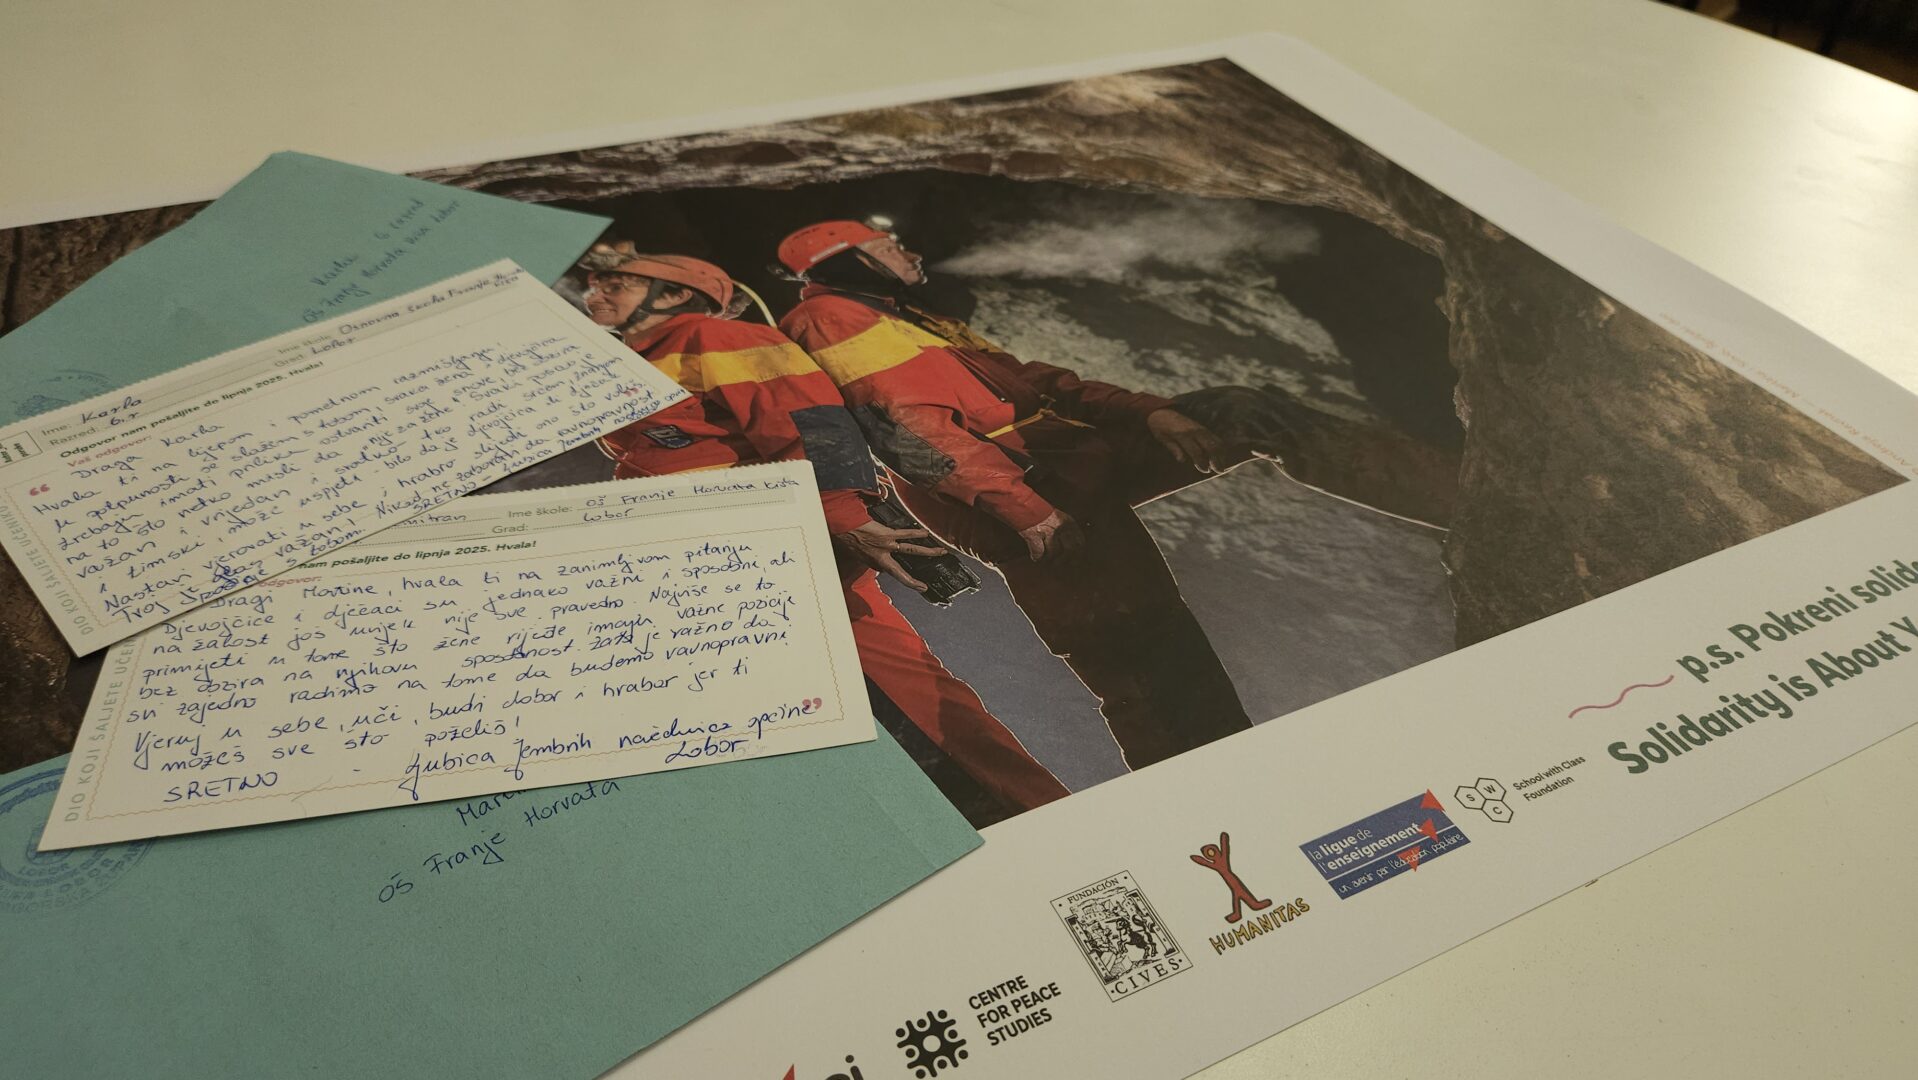 Karla 6 razred
OŠ Franje Horvata Kiša Lobor
Ime škole: Osnovna škola Franje Horvata Kiša
Grad: Lobor
Ime: Karla
Razred: 6.r
Odgovor nam pošaljite do lipnja 2025. Hvala!
Vaš odgovor:
Draga Karla
Hvala ti na lijepom i pametnom razmišljanju!
U potpunosti se slažem s tobom, svaka žena i djevojčica
trebaju imati priliku ostvariti svoje snove, bez obzira
na to što netko misli da nije za žene. Svaki posao je
važan i vrijedan i svatko tko radi srcem, znanjem
i timski, može uspjeti - bilo da je djevojčica ili dječak
Nastavi vjerovati u sebe i hrabro slijedi ono što voliš.
važan! Nikad ne zaboravi da ravnopravnost
tobom. SRETNO - Ljubica Jembrih
DIO KOJI ŠALJETE UČENIKU
Ime škole: OŠ Franje Horvata Kiša
Grad: Lobor
nam pošaljite do lipnja 2025. Hvala!
odgovor:
Dragi Martine, hvala ti na zanimljivom pitanju
Djevojčice i dječaci su jednako važni i sposobni, ali
na žalost još uvijek nije sve pravedno. Najviše se to
primijeti u tome što žene rijeđe imaju važne pozicije
bez obzira na njihovu sposobnost. Zato je važno da
svi zajedno radimo na tome da budemo ravnopravni.
Vjeruj u sebe, uči, budi dobar i hrabar jer ti
možeš sve što poželiš!
SRETNO - Ljubica Jembrih načelnica općine
Lobor
DIO KOJI ŠALJETE UČE
OŠ Franje Horvata
LOBOR
p.s. Pokreni solid
Solidarity is About Y
CENTRE
FOR PEACE
STUDIES
FUNDACIÓN
·CIVES·
HUMANITAS
la ligue de
l'enseignement
un avenir par l'éducation populaire
S W C
School with Class
Foundation